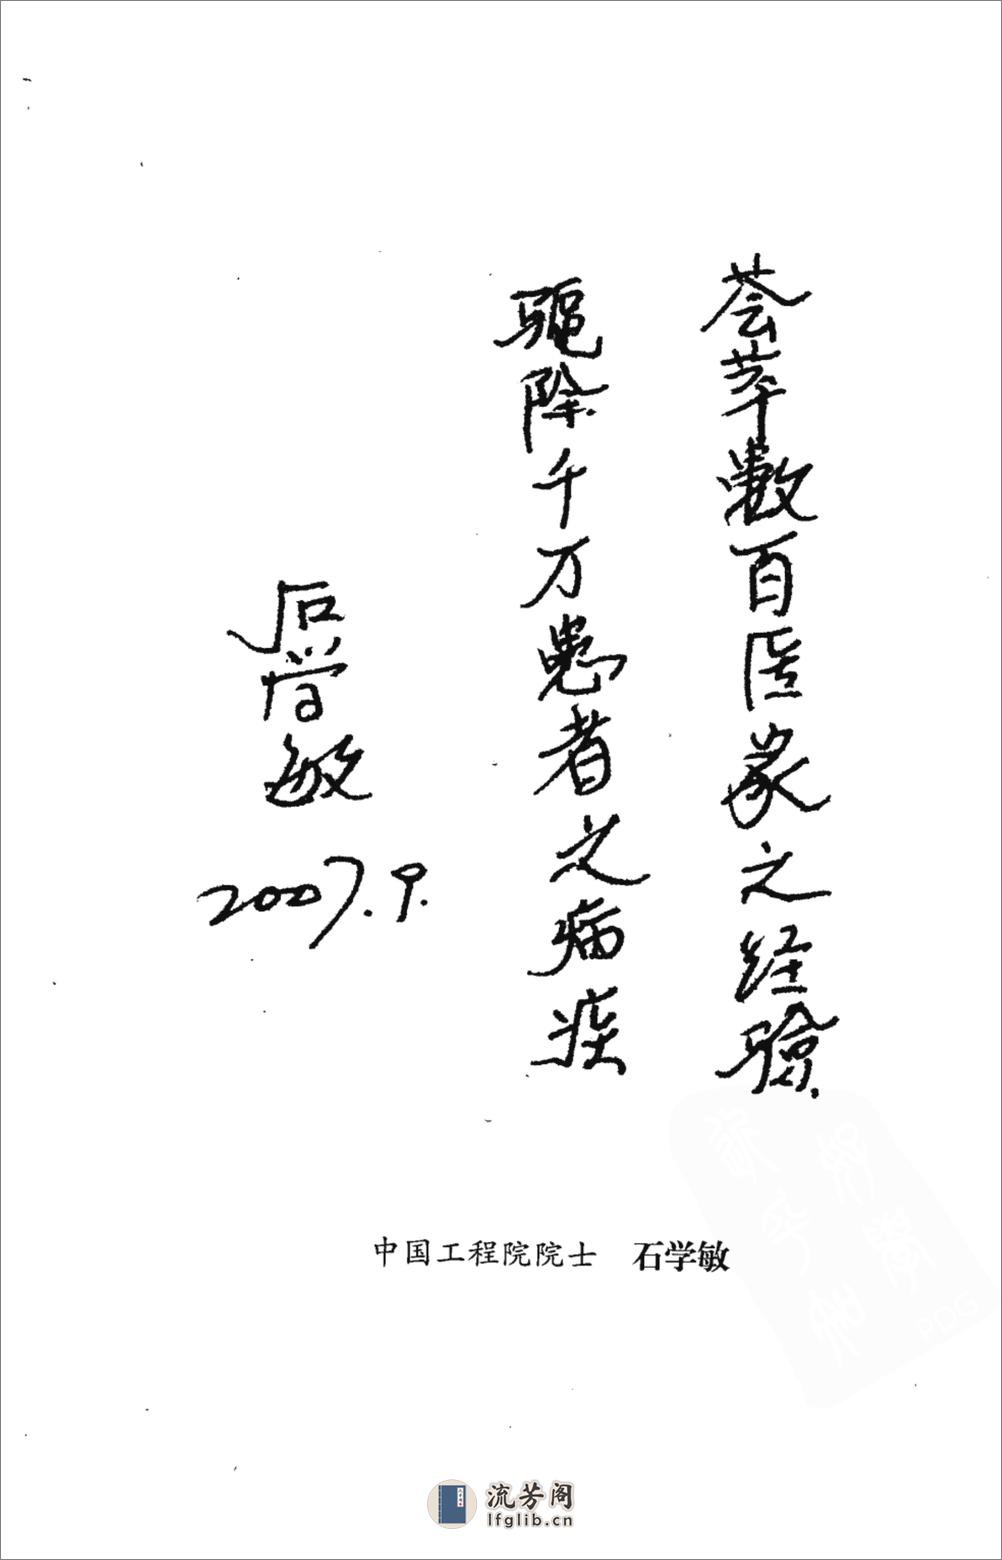 荟萃数百医家之经验
驱除千万患者之病疾
石学敏
2007.9.
中国工程院院士 石学敏
PDG
流芳阁
lfglib.cn